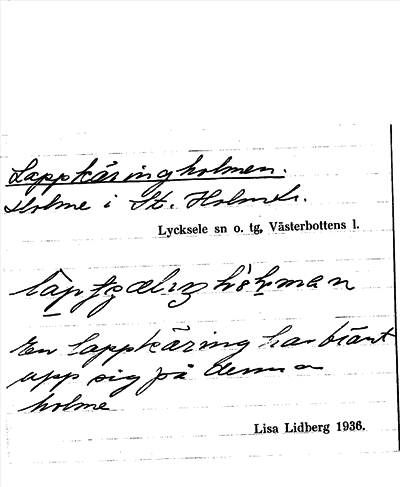 Lappkäringholmen.
Holme i St. Holmsh.
Lycksele sn o. tg, Västerbottens l.
En lappkäring har bränt
upp sig på denna
holme
Lisa Lidberg 1936.